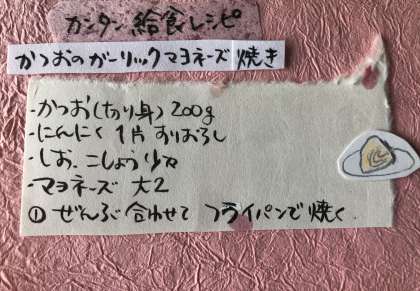 カンタン 給食レシピ
かつおのガーリックマヨネーズ焼き
・かつお(切り身) 200g
・にんにく 1片 すりおろし
・しお、こしょう 少々
・マヨネーズ 大2
① ぜんぶ合わせて フライパンで焼く。